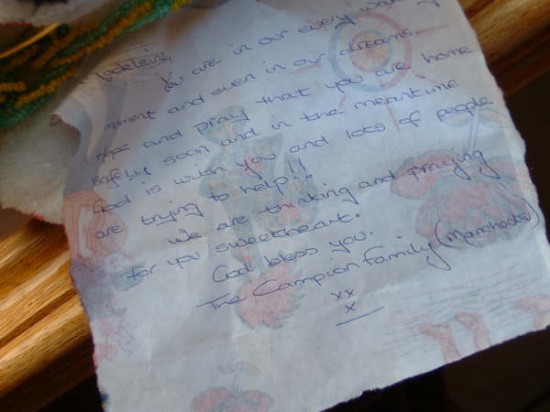 Madeleine,
You are in our every waking
moment and even in our dreams.
Hope and pray that you are home
safely soon and in the meantime
God is with you and lots of people
are trying to help!!
We are thinking and praying
for you sweetheart.
God bless you.
The Campion Family (Manchester)
xx
x